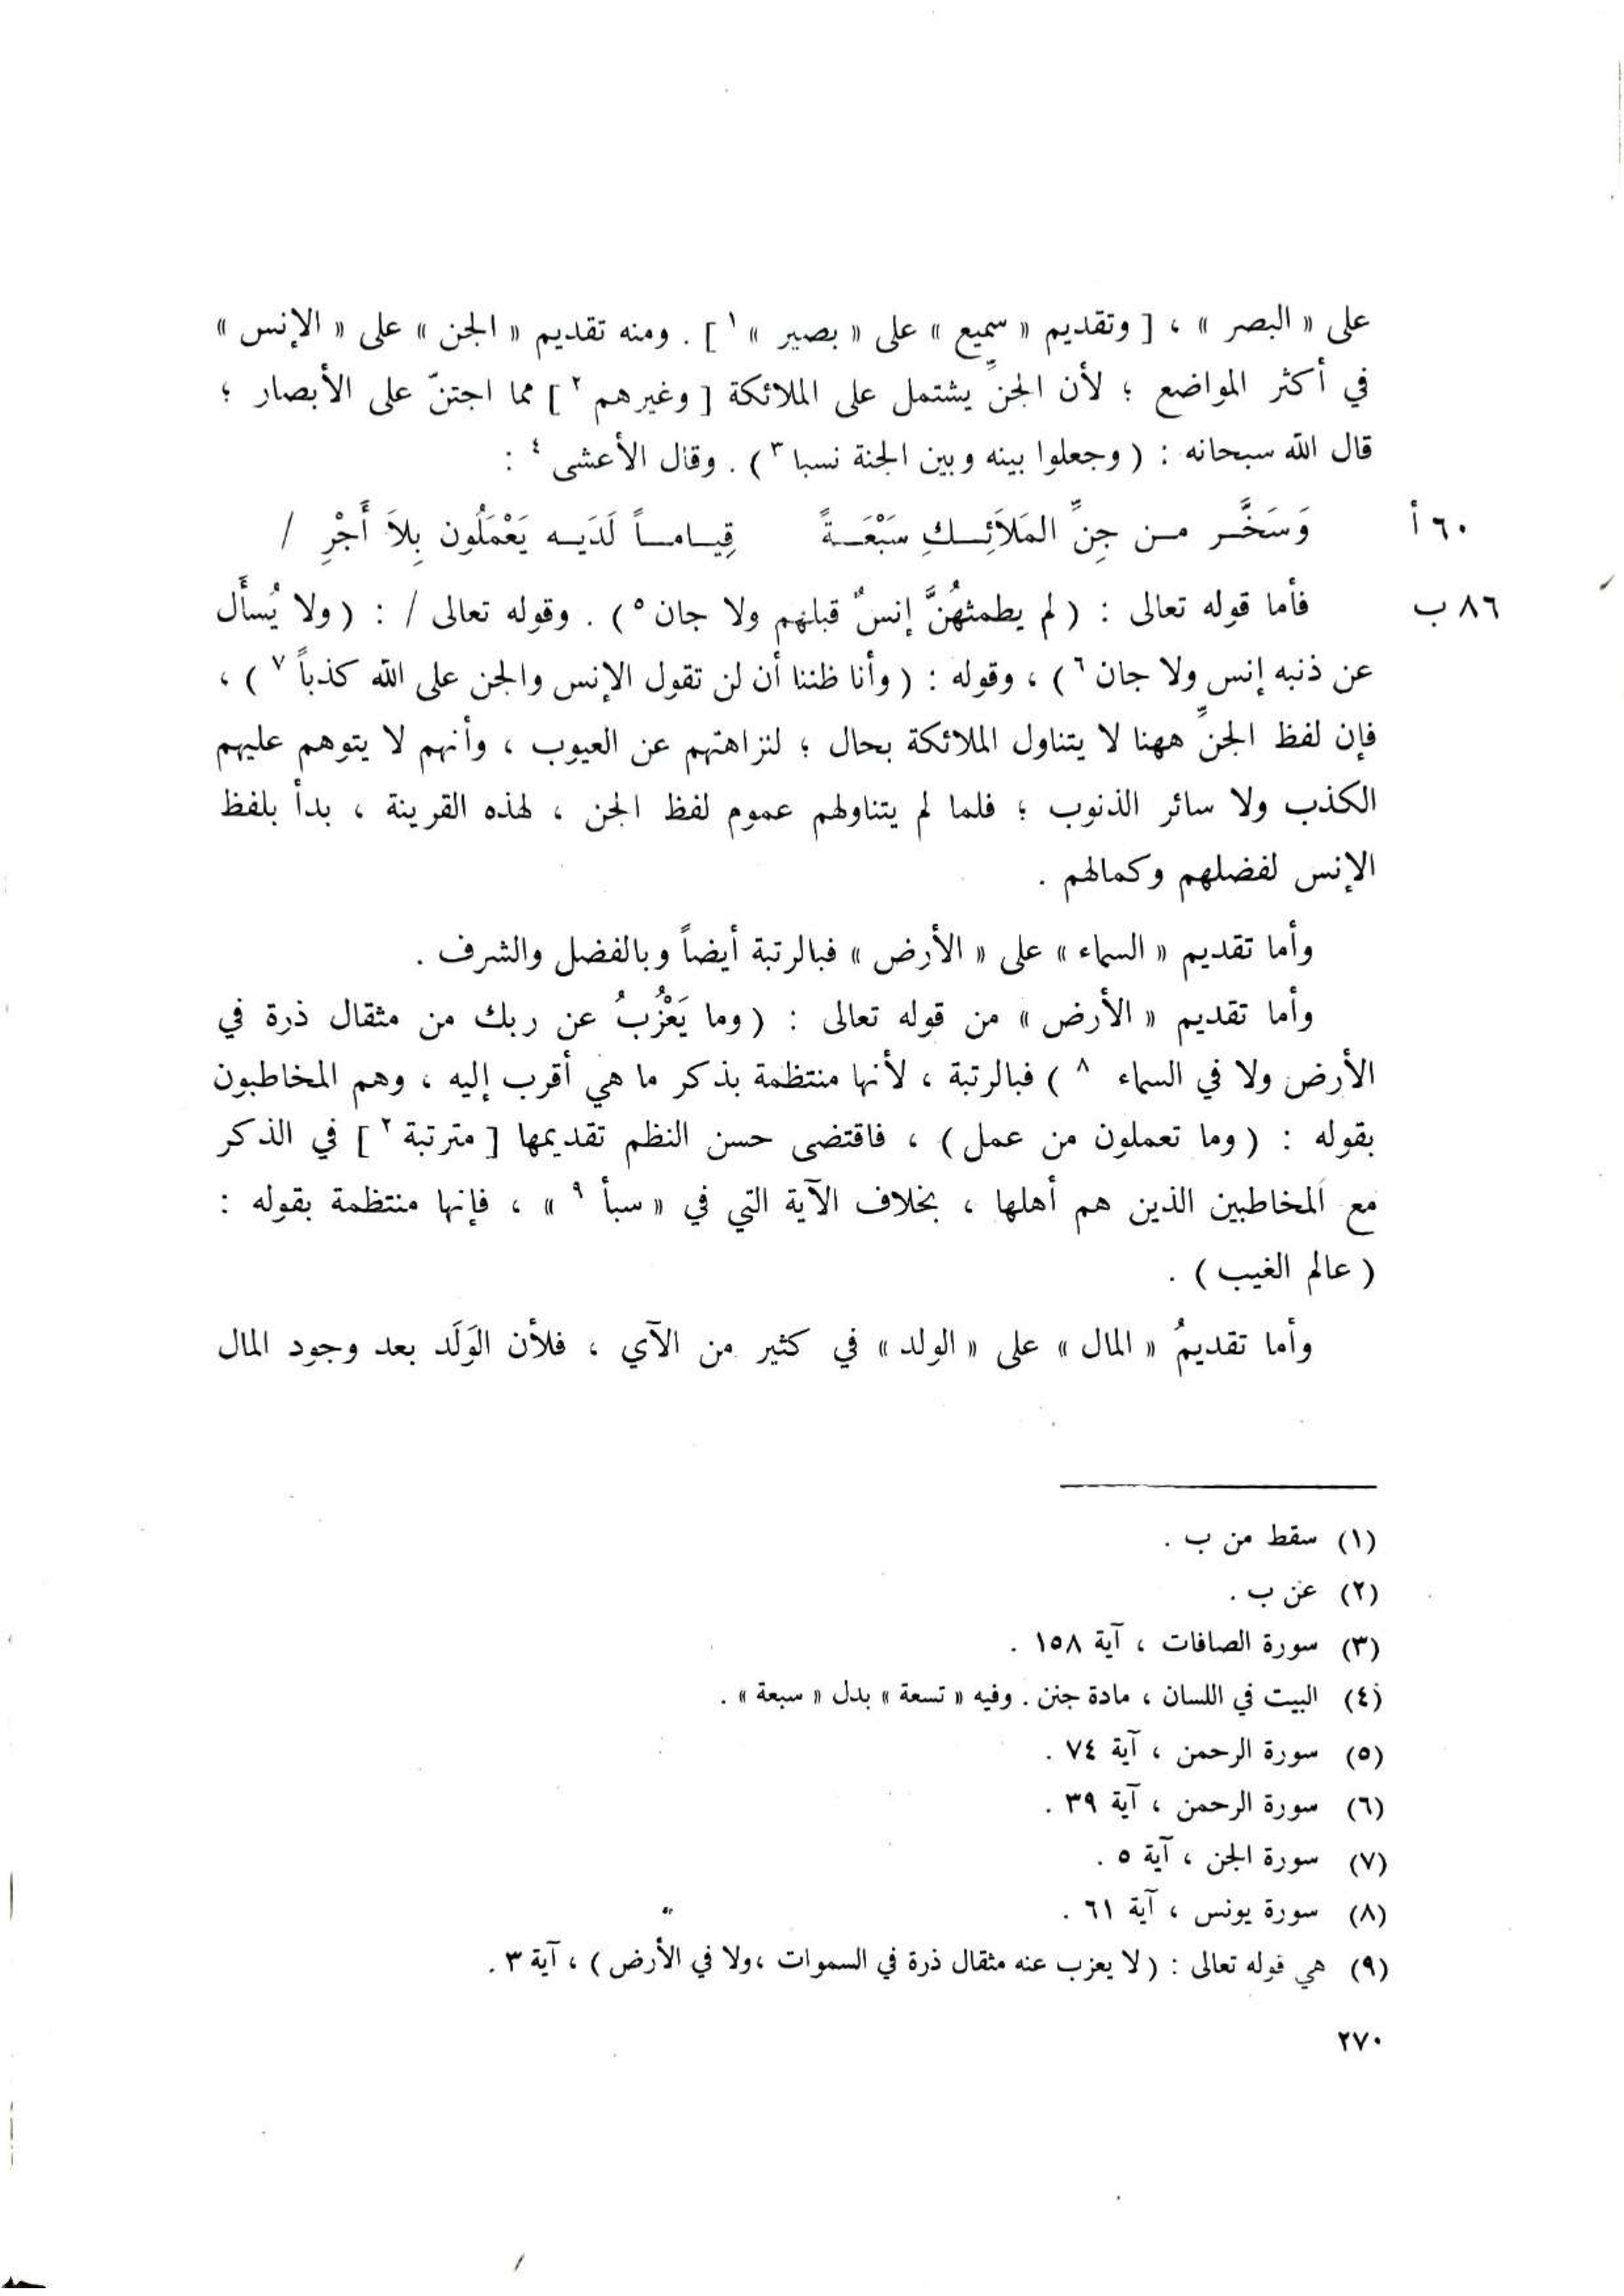 على « البصر » ، [ وتقديم « سميع » على « بصير » ١ ] . ومنه تقديم « الجن » على « الإنس »
في أكثر المواضع ؛ لأن الجنِّ يشتمل على الملائكة [ وغيرهم ٢ ] مما اجتنّ على الأبصار ؛
قال الله سبحانه : ( وجعلوا بينه وبين الجنة نسبا ٣ ) . وقال الأعشى ٤ :
٦٠ أ وَسَخَّـر مـن جِنِّ المَلاَئِـكِ سَبْعَـةً قِيـامـاً لَدَيـه يَعْمَلُون بِلاَ أَجْرِ /
٨٦ ب فأما قوله تعالى : ( لم يطمثهُنَّ إنسٌ قبلهم ولا جان ٥ ) . وقوله تعالى / : ( ولا يُسأَل
عن ذنبه إنس ولا جان ٦ ) ، وقوله : ( وأنا ظننا أن لن تقول الإنس والجن على الله كذباً ٧ ) ،
فإن لفظ الجنِّ ههنا لا يتناول الملائكة بحال ؛ لنزاهتهم عن العيوب ، وأنهم لا يتوهم عليهم
الكذب ولا سائر الذنوب ؛ فلما لم يتناولهم عموم لفظ الجن ، لهذه القرينة ، بدأ بلفظ
الإنس لفضلهم وكمالهم .
وأما تقديم « السماء » على « الأرض » فبالرتبة أيضاً وبالفضل والشرف .
وأما تقديم « الأرض » من قوله تعالى : ( وما يَعْزُبُ عن ربك من مثقال ذرة في
الأرض ولا في السماء ٨ ) فبالرتبة ، لأنها منتظمة بذكر ما هي أقرب إليه ، وهم المخاطبون
بقوله : ( وما تعملون من عمل ) ، فاقتضى حسن النظم تقديمها [ مترتبة ٢ ] في الذكر
مع المخاطبين الذين هم أهلها ، بخلاف الآية التي في « سبأ ٩ » ، فإنها منتظمة بقوله :
( عالم الغيب ) .
وأما تقديمُ « المال » على « الولد » في كثير من الآي ، فلأن الوَلَد بعد وجود المال
(١) سقط من ب .
(٢) عن ب .
(٣) سورة الصافات ، آية ١٥٨ .
(٤) البيت في اللسان ، مادة جنن . وفيه « تسعة » بدل « سبعة » .
(٥) سورة الرحمن ، آية ٧٤ .
(٦) سورة الرحمن ، آية ٣٩ .
(٧) سورة الجن ، آية ٥ .
(٨) سورة يونس ، آية ٦١ .
(٩) هي قوله تعالى : ( لا يعزب عنه مثقال ذرة في السموات ، ولا في الأرض ) ، آية ٣ .
٢٧٠